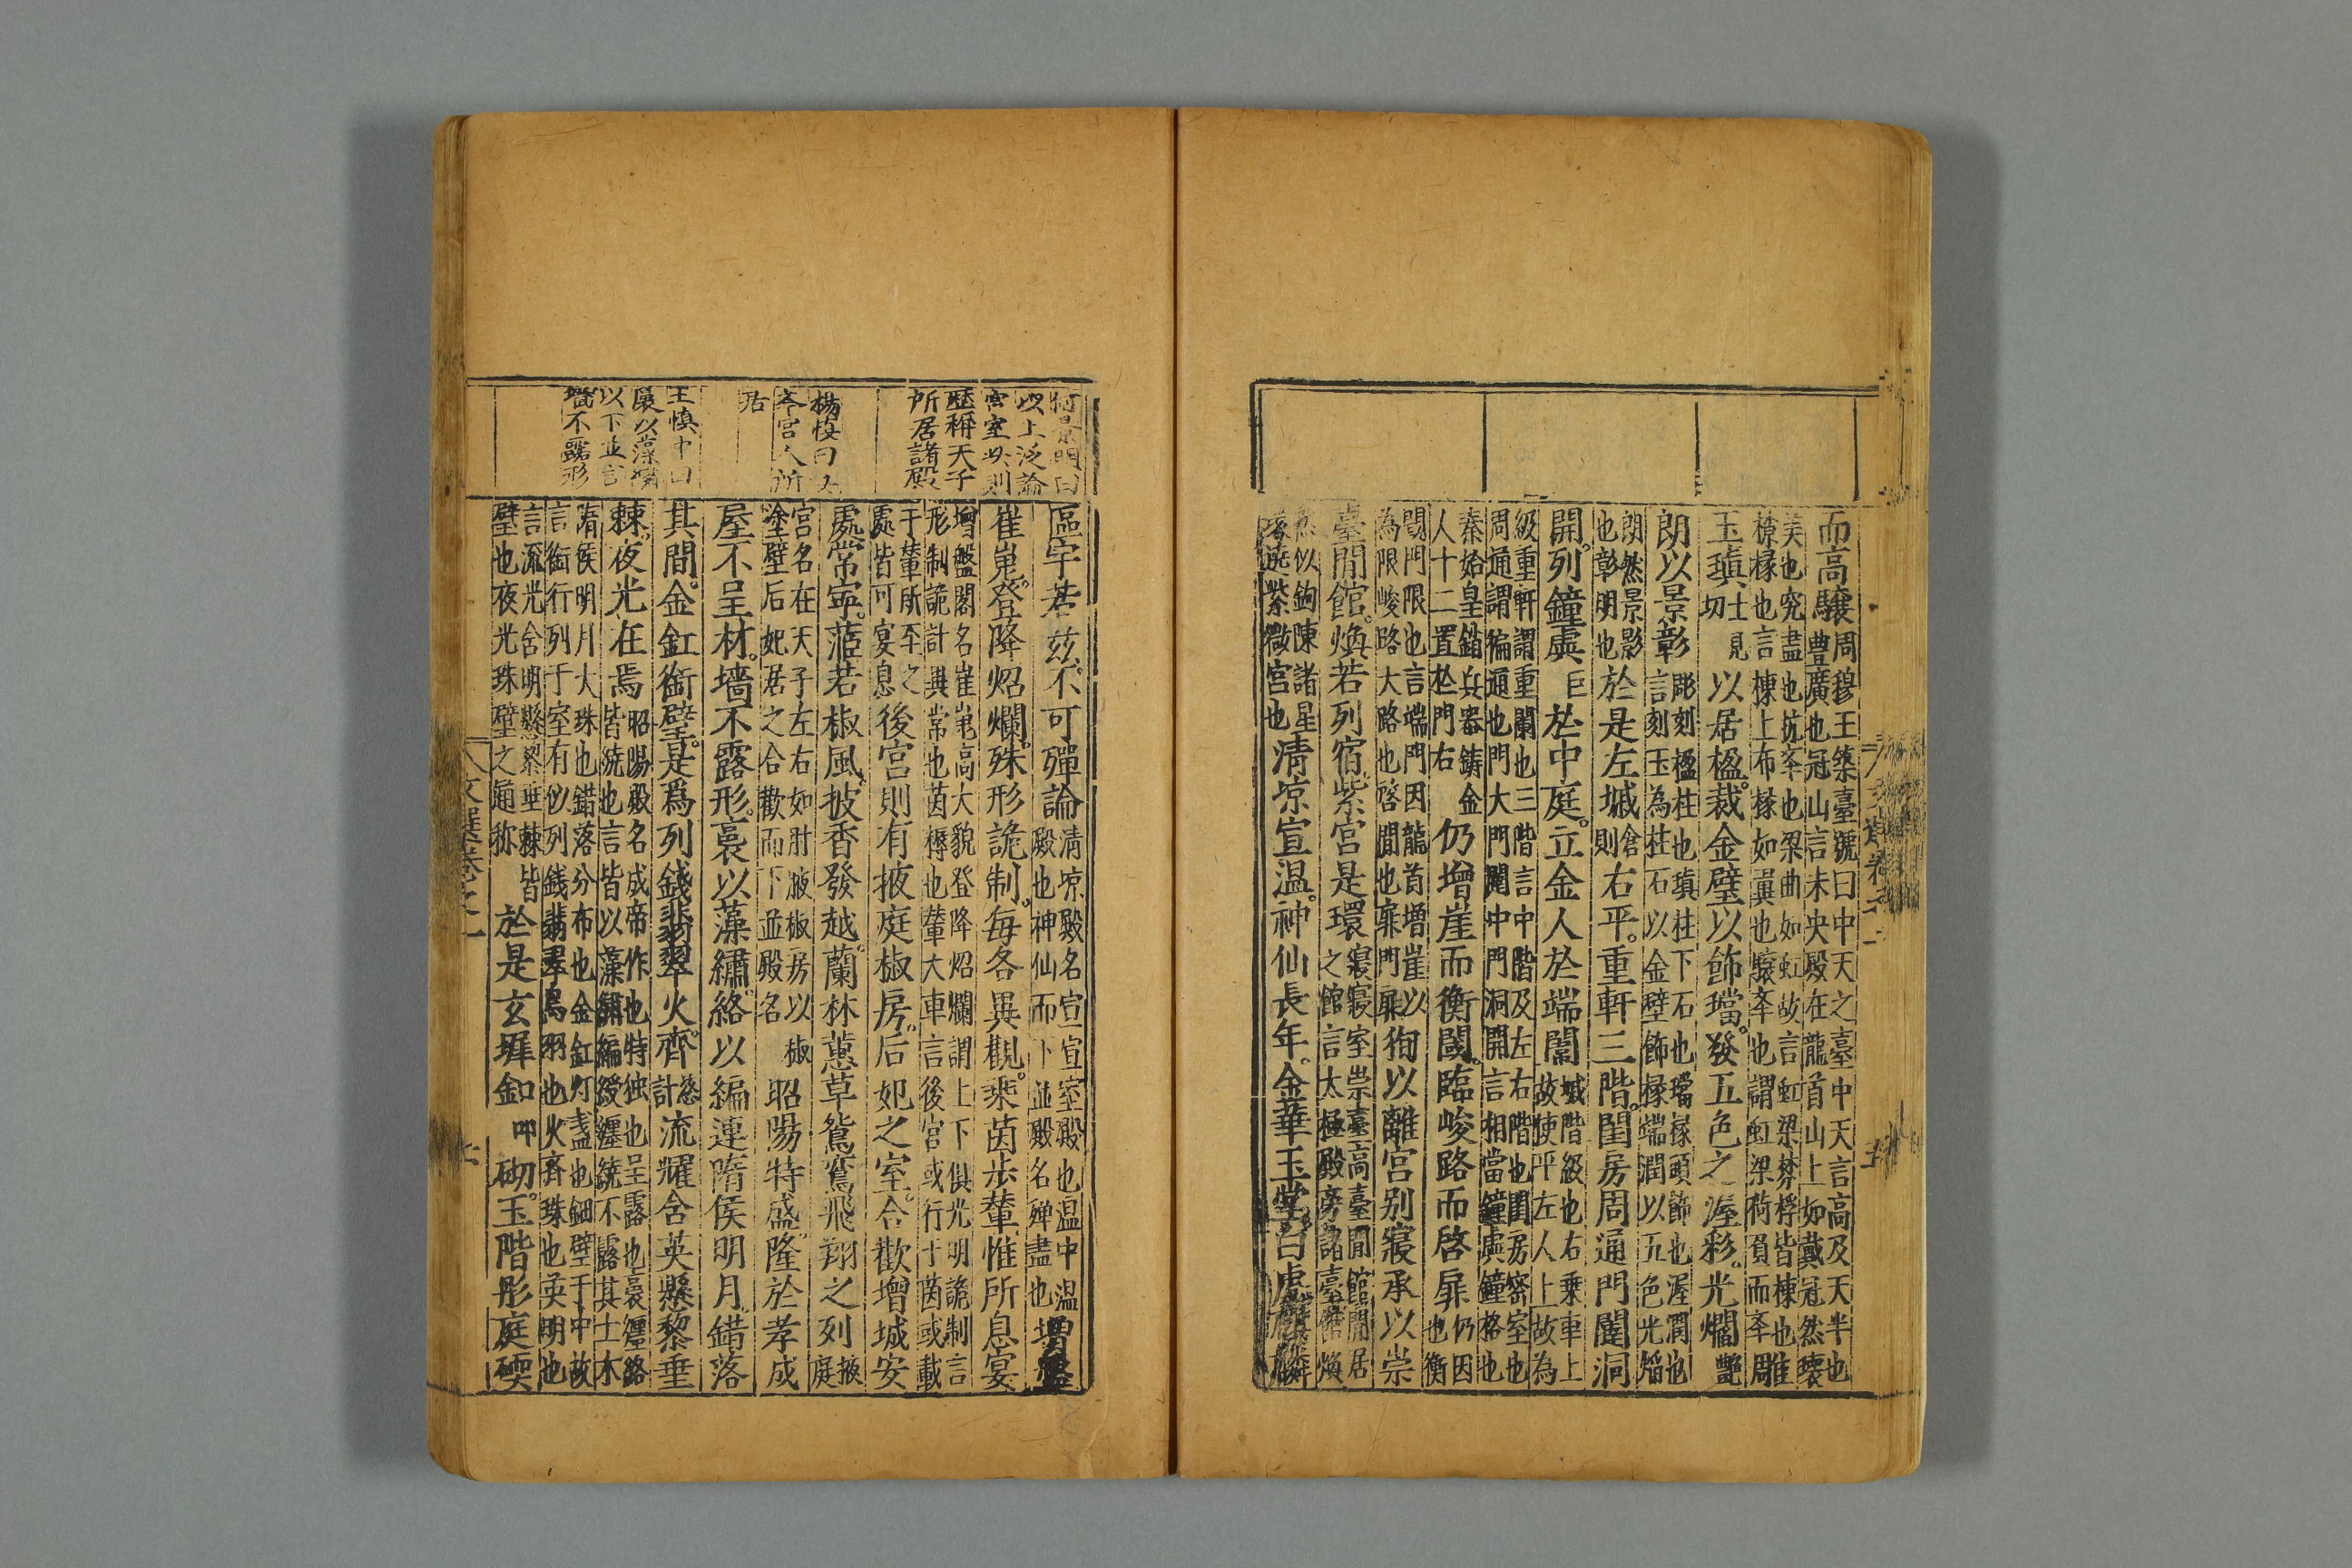 而高驤周穆王築臺號曰中天之臺中天言高及天半也
豊廣也冠山言未央殿在龍首山上如戴冠然瓌
美也究盡也抗夲也梁曲如虹故言虹梁棼桴皆棟也雕
橑椽也言棟上布椽如翼也驤夲也謂虹梁荷負而夲
玉瑱士見切以居楹。裁金璧以飾璫。發五色之渥彩。光爓
朗以景彰彫刻楹柱也瑱柱下石也璫椽頭飾也渥潤也
言刻玉為柱石以金壁飾椽端潤以五色光焰
朗然景影
也彰明也於是左墄倉則右平。重軒三階。閨房周通門闥洞
開。列鐘虡巨於中庭。立金人於端闈墄階級也右乗車上
故使平左人上故為
級重軒謂重闌也三階言中階及左右階也閨房密室也
周通謂徧通也門大門闥中門洞開言相當鐘虡鐘格也
秦始皇銷兵器鑄金
人十二置於門右仍增崖而衡閾。臨峻路而啓扉仍因
也衡
閾門限也言端門因龍首增崖以
為限峻路大路也啓開也扉門扉徇以離宮别寢承以崇
臺閒館。煥若列宿紫宮是環寢寢室崇臺高臺閒館閒居
之館言太極殿旁諸臺館煥
然似鉤陳諸星
環遶紫微宮也清凉宣温。神仙長年。金華玉堂白虎麒麟
區宇若兹。不可殫論清凉殿名宣宣室殿也温中温
殿也神仙而下並殿名殫盡也增盤
崔嵬。登降炤爛。殊形詭制。每各異觀。乘茵歩輦惟所息宴
增盤閣名崔嵬高大貌登降炤爛謂上下俱光明詭制言
形制詭計異常也茵褥也輦大車言後宮或行于茵或載
于輦所至之
處皆可宴息後宮則有掖庭椒房。后妃之室。合歡增城安
處常寧。茝若椒風。披香發越。蘭林蕙草鴛鸞飛翔之列掖
庭
宮名在天子左右如肘腋椒房以椒
塗壁后妃居之合歡而下並殿名昭陽特盛。隆於孝成
屋不呈材。墻不露形。裛以藻繡。絡以編連隋侯明月。錯落
其間金釭銜璧。是爲列錢翡翠火齊。慈計流耀含英懸黎垂
棘。夜光在焉昭陽殿名成帝作也特独也呈露也裛纒絡
皆繞也言皆以藻繡編綬纒繞不露其土木
隋侯明月大珠也錯落分布也金釭灯盞也鈿壁于中故
言銜行列于室有似列錢翡翠鳥羽也火齊珠也英明也
言流光含明懸黎垂棘皆
璧也夜光珠璧之通称於是玄墀釦叩砌。玉階彤庭碝
何景明曰
以上泛論
宮室此則
歷稱天子
所居諸殿
楊慎曰
夲宮人所
居
王慎中曰
裛以藻繡
以下並言
墻不露形